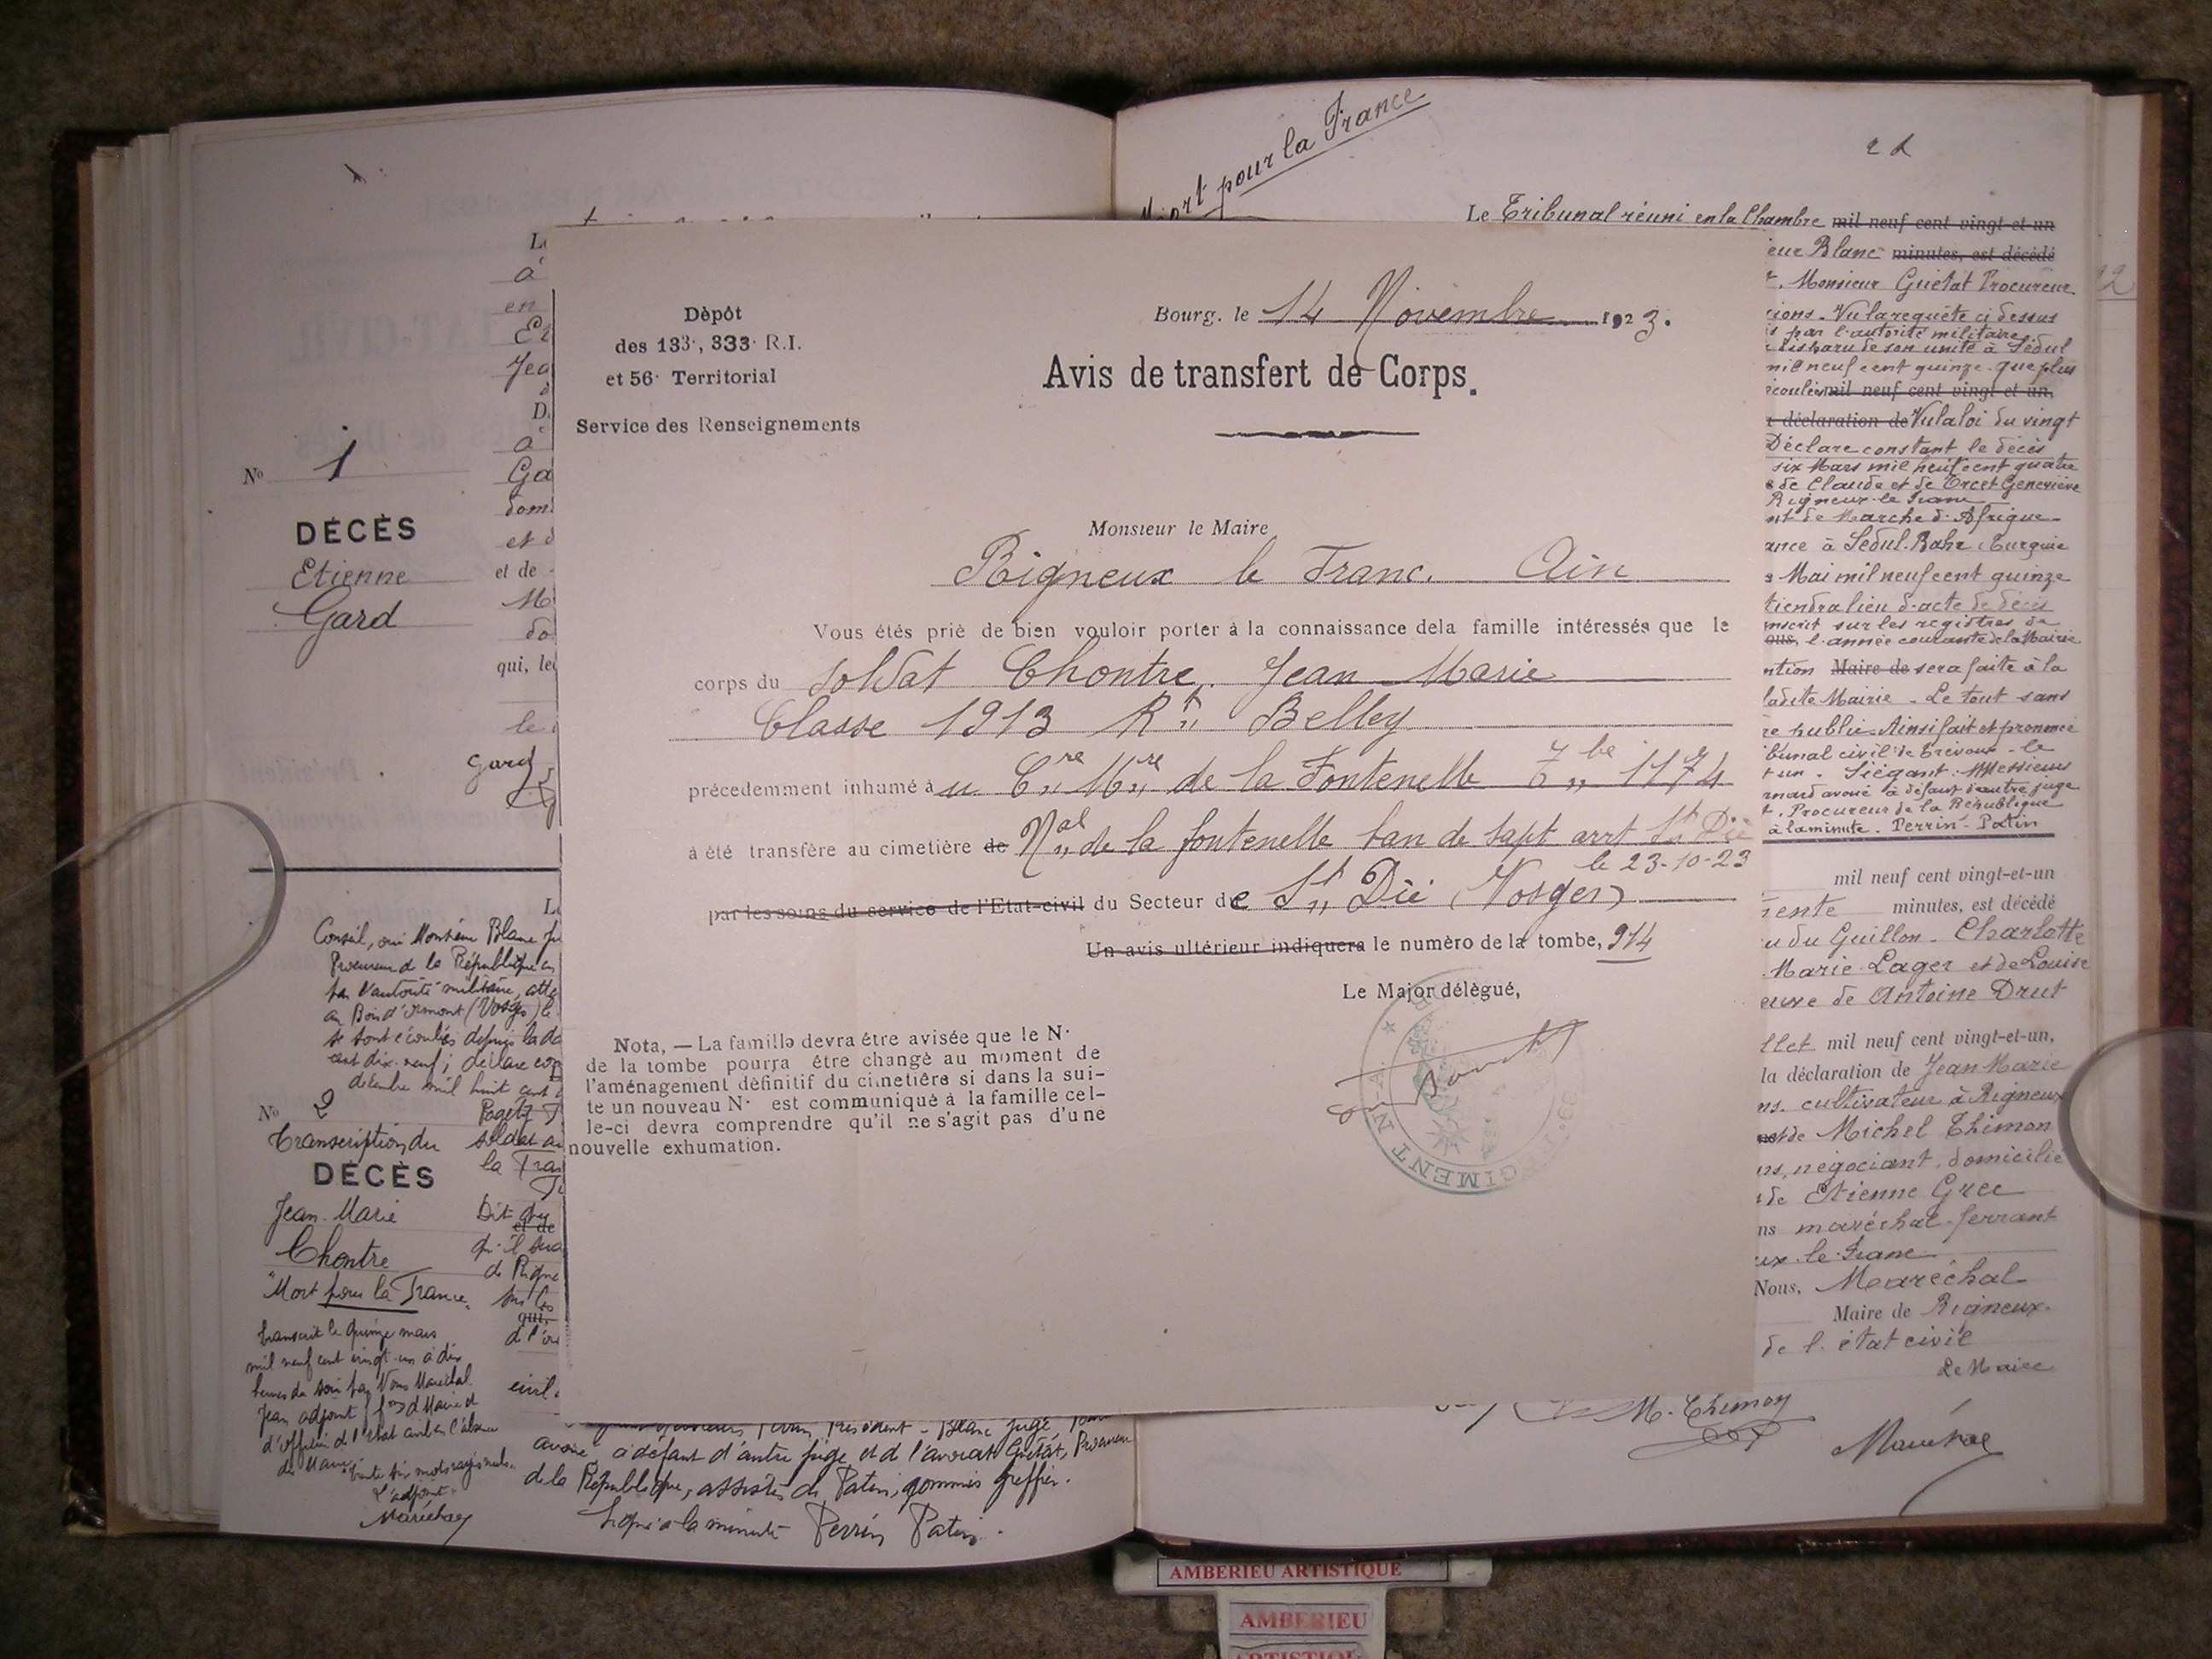 Dèpôt
des 133ᵉ, 333ᵉ R.I.
et 56ᵉ Territorial
Service des Renseignements
Bourg. le 14 Novembre 1923.
Avis de transfert de Corps.
Monsieur le Maire
Rigneux le Franc. Ain
Vous étés priè de bien vouloir porter à la connaissance dela famille intéressés que le
corps du soldat Chontre, Jean Marie
Classe 1913 Rᵗ Belley
précedemment inhumé à u Cʳᵉ Mʳᵉ de la Fontenelle Tᵇᵉ 1174
à été transfère au cimetière de Nᵃˡ de la fontenelle ban de sapt arrt Sᵗ Dié
le 23-10-23
par les soins du service de l'Etat-civil du Secteur de Sᵗ Dié (Vosges)
Un avis ultérieur indiquera le numèro de la tombe, 914
Le Major délègué,
Nota, — La famille devra étre avisée que le N·
de la tombe pourra être changè au moment de
l'aménagement dèfinitif du cimetière si dans la sui-
te un nouveau N· est communiqué à la famille cel-
le-ci devra comprendre qu'il ne s'agit pas d'une
nouvelle exhumation.
REGIMENT
Nº 1
DÉCÈS
Etienne
Gard
Gard
Conseil, oui Monsieur Blanc
Procureur de la République en
par l'autorité militaire, atte
au Bois d'Ormont (Vosges) le
se sont écoulés depuis la da
cent dix-neuf; déclare con
décembre mil huit cent
Nº 2
Transcription du
DÉCÈS
Jean-Marie
Chontre
"Mort pour la France"
soldat au
la Fran
et de
qu'il sera
de Rigne
qui,
civil
transcrit le quinze mars
mil neuf cent vingt-un à dix
heures du soir par Nous Maréchal
Jean adjoint fᵒⁿˢ d Maire et
d'officier de l'état civil en l'absence
du Maire
l'adjoint
Maréchal
avoué à défaut d'autre juge et d l'avocat Guétat, Procureur
de la République, assistés de Patin, commis greffier.
Signé à la minute Perrin Patin.
Mort pour la France
Le Tribunal réuni en la Chambre mil neuf cent vingt-et-un
ieur Blanc minutes, est décédé
Monsieur Guétat Procureur
ions. Vu la requête ci dessus
s par l'autorité militaire
disparu de son unité à Sédul
mil neuf cent quinze. que plus
écoulés mil neuf cent vingt et un,
déclaration de Vu la loi du vingt
Déclare constant le décès
six Mars mil neuf cent quatre
s de Claude et de Ercet Geneviève
Rigneux-le-Franc
nt de Marche d'Afrique
ance à Sédul-Bahr, Turquie
Mai mil neuf cent quinze
tiendra lieu d'acte de décès
inscrit sur les registres de
ous, l'année courante de la Mairie
ntion Maire de sera faite à la
ladite Mairie. Le tout sans
re public. Ainsi fait et prononcé
ibunal civil de Trévoux - le
t un. Siégant: Messieurs
rnard avoué à défaut d'autre juge
t. Procureur de la République
à la minute. Perrin - Patin
mil neuf cent vingt-et-un
rente minutes, est décédé
u du Guillon. Charlotte
Marie Lager et de Louise
euve de Antoine Drut
llet mil neuf cent vingt-et-un,
la déclaration de Jean Marie
ns. cultivateur à Rigneux
et de Michel Thimon
ns, négociant, domicilié
de Etienne Grec
ns maréchal-ferrant
ux-le-Franc
Nous, Maréchal
Maire de Rigneux.
de l'état civil
Le Maire
M. Thimon
Maréchal
AMBERIEU ARTISTIQUE
AMBERIEU
ARTISTIQUE